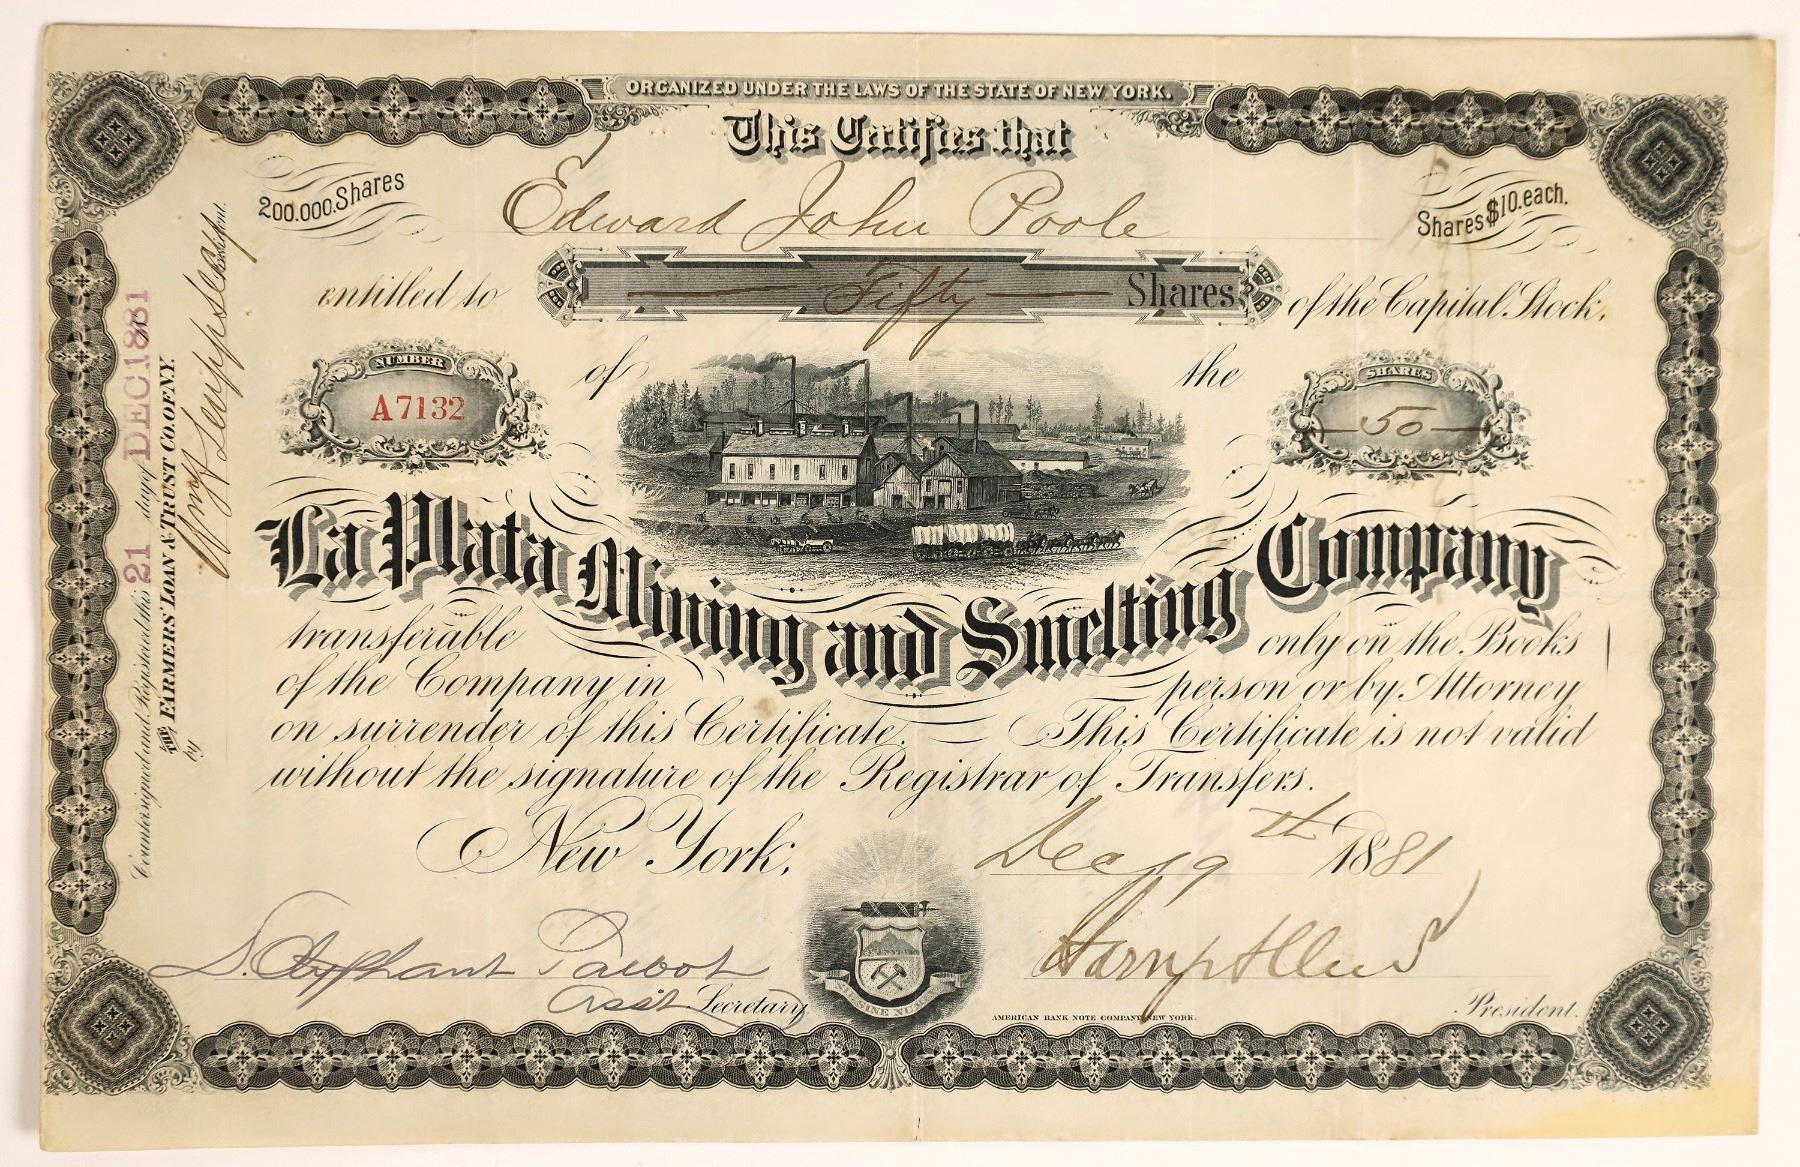 ORGANIZED UNDER THE LAWS OF THE STATE OF NEW YORK.
This Certifies that
200.000. Shares
Edward John Poole
Shares $10. each.
entitled to
Fifty Shares
of the Capital Stock.
NUMBER
A7132
of
the
SHARES
50
La Plata Mining and Smelting Company
transferable only on the Books
of the Company in person or by Attorney
on surrender of this Certificate. This Certificate is not valid
without the signature of the Registrar of Transfers.
New York, Dec 19th 1881
S. Olyphant Talbot
Asst Secretary
President.
AMERICAN BANK NOTE COMPANY NEW YORK.
Countersigned and Registered this 21 day of DEC 1881
THE FARMERS' LOAN & TRUST CO. OF N.Y.
by